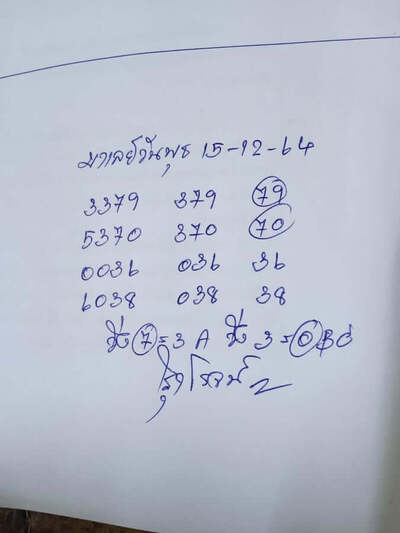 มาเลย์วันพุธ 15-12-64
3379 379 79
5370 370 70
0036 036 36
6038 038 38
7=3 A 3=0